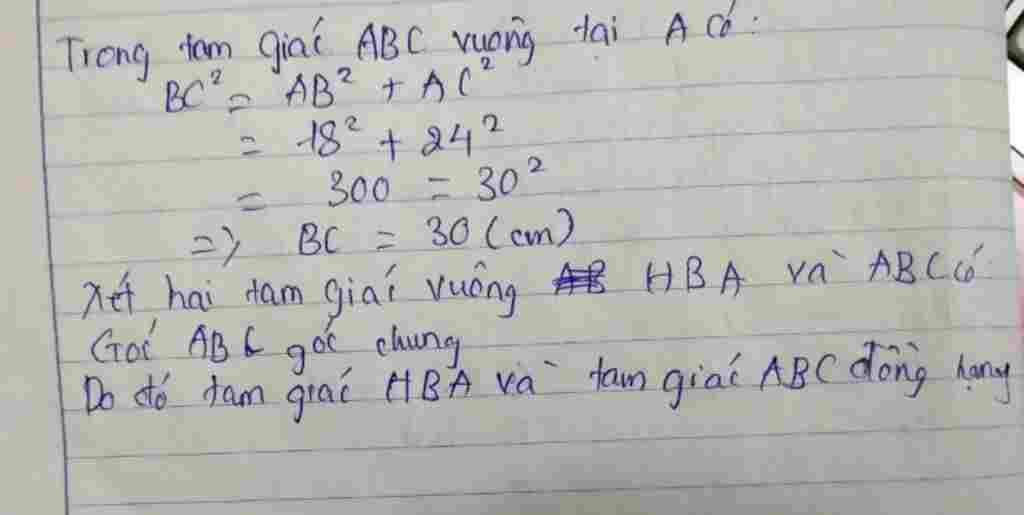 Trong tam giác ABC vuông tại A có:
BC² = AB² + AC²
= 18² + 24²
= 300 = 30²
=> BC = 30 (cm)
Xét hai tam giác vuông HBA và ABC có
Góc ABC góc chung
Do đó tam giác HBA và tam giác ABC đồng hạng